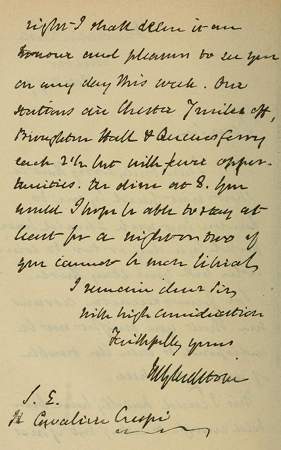 right I shall deem it an
honour and pleasure to see you
on any day this week. Our
stations are Chester 7 miles off,
Broughton Hall & Queensferry
each 2½ but with fewer oppor-
tunities. We dine at 8. You
would I hope be able to stay at
least for a night or two if
you cannot be more liberal.
I remain dear Sir
with high consideration
Faithfully yours
WEGladstone
S. E.
Il Cavaliere Crespi